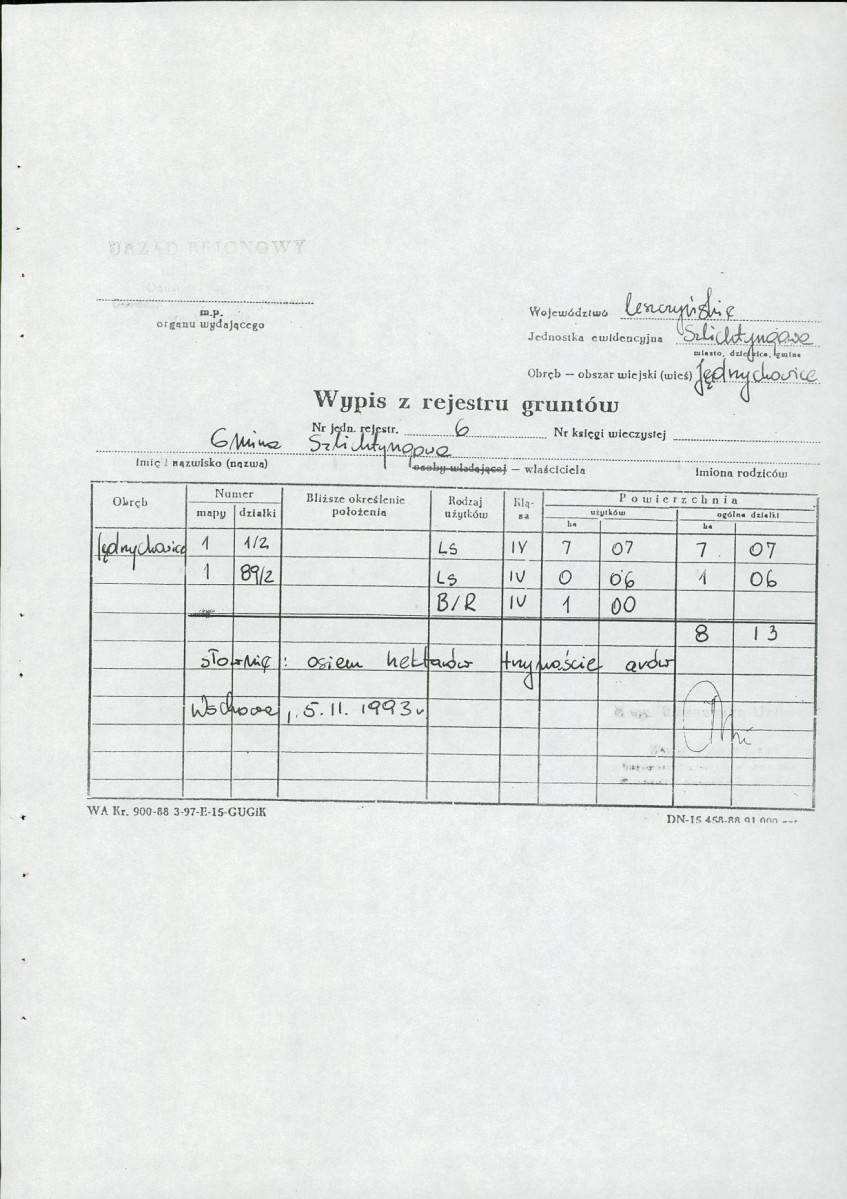 URZĄD REJONOWY
m.p.
organu wydającego
Województwo Leszczyńskie
Jednostka ewidencyjna Szlichtyngowa
miasto, dzielnica, gmina
Obręb — obszar wiejski (wieś) Jędrychowice
Wypis z rejestru gruntów
Nr jedn. rejestr. 6 Nr księgi wieczystej
Gmina Szlichtyngowa
imię i nazwisko (nazwa) osoby władającej — właściciela imiona rodziców
Obręb Numer Bliższe określenie położenia Rodzaj użytków Kla-sa Powierzchnia
mapy działki użytków ogólna działki
ha ha
Jędrychowice 1 1/2 Ls IV 7 07 7 07
1 89/2 Ls IV 0 06 1 06
B/R IV 1 00
8 13
słownie: osiem hektarów trzynaście arów
Wschowa, 5.11.1993r
WA Kr. 900-88 3-97-E-15-GUGiK
DN-15 458-88 91 000